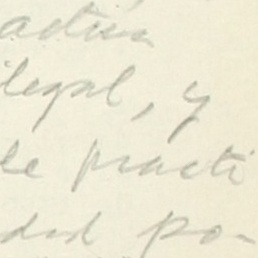 ilegal, y
le practi
dad po-